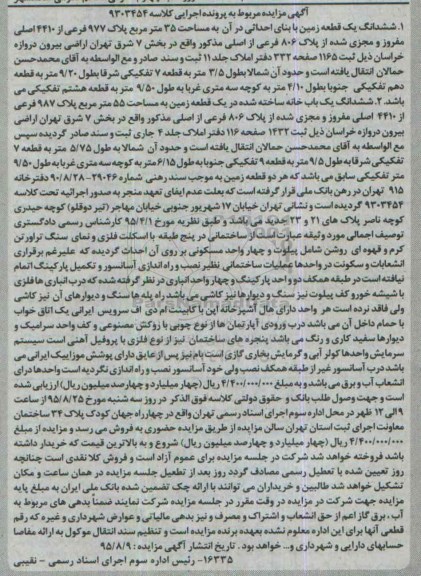 آگهی مزایده مربوط به پرونده اجرایی کلاسه ۹۳۰۳۴۵۴
۱. ششدانگ یک قطعه زمین با بنای احداثی در آن به مساحت ۳۵ متر مربع پلاک ۹۷۷ فرعی از ۴۴۱۰ اصلی
مفروز و مجزی شده از پلاک ۸۰۶ فرعی از اصلی مذکور واقع در بخش ۷ شرق تهران اراضی بیرون دروازه
خراسان ذیل ثبت ۱۱۶۵ صفحه ۳۳۲ دفتر املاک جلد ۱۱ ثبت و سند صادر و مع الواسطه به آقای محمدحسن
حمالان انتقال یافته است و حدود آن شمالا بطول ۳/۵ متر به قطعه ۷ تفکیکی شرقا بطول ۹/۲۰ متر به قطعه
دهم تفکیکی جنوبا بطول ۴/۱۰ متر به کوچه سه متری غربا به طول ۹/۵۰ متر به قطعه هشتم تفکیکی می
باشد ۲. ششدانگ یک باب خانه ساخته شده در یک قطعه زمین به مساحت ۵۵ متر مربع پلاک ۹۸۷ فرعی
از ۴۴۱۰ اصلی مفروز و مجزی شده از پلاک ۸۰۶ فرعی از اصلی مذکور واقع در بخش ۷ شرق تهران اراضی
بیرون دروازه خراسان ذیل ثبت ۱۴۳۲ صفحه ۱۱۶ دفتر املاک جلد ۴ جاری ثبت و سند صادر گردیده سپس
مع الواسطه به آقای محمدحسن حمالان انتقال یافته است و حدود آن شمالا به طول ۵/۷۵ متر به قطعه ۷
تفکیکی شرقا بطول ۹/۵ متر به قطعه ۹ تفکیکی جنوبا به طول ۶/۱۵ متر به کوچه سه متری غربا به طول ۹/۵۰
متر تفکیکی سابق می باشد که هر دو قطعه زمین به موجب سند رهنی شماره ۲۹۰۴۶-۹۰/۸/۲۸ دفترخانه
۹۱۵ تهران در رهن بانک ملی قرار گرفته است که بعلت عدم ایفای تعهد منجر به صدور اجرائیه تحت کلاسه
۹۳۰۳۴۵۴ گردیده است و نشانی تهران خیابان ۱۷ شهریور جنوبی خیابان مهاجر (تیر دوقلو) کوچه حیدری
کوچه ناصر پلاک های ۲۱ و ۲۳ جدید می باشد و طبق نظریه مورخ ۹۵/۴/۱ کارشناس رسمی دادگستری
توصیف اجمالی مورد وثیقه عبارت است از ساختمانی در پنج طبقه با اسکلت فلزی و نمای سنگ تراورتن
کرم و قهوه ای روشن شامل پیلوت و چهار واحد مسکونی بر روی آن احداث گردیده که علیرغم برقراری
انشعابات و سکونت در واحدها عملیات ساختمانی نظیر نصب و راه اندازی آسانسور و تکمیل پارکینگ اتمام
نیافته است در طبقه همکف دو واحد پارکینگ و چهار واحد انباری در نظر گرفته شده که درب انباری ها فلزی
با شیشه خور و کف پیلوت نیز سنگ و دیوارها نیز کاشی می باشد راه پله ها سنگ و دیوارهای آن نیز کاشی
ولی فاقد نرده است هر واحد دارای هال آشپزخانه اپن با کابینت ام دی اف سرویس ایرانی یک اتاق خواب
با حمام داخل آن می باشد درب ورودی آپارتمان ها از نوع چوبی با روکش مصنوعی و کف واحد سرامیک و
دیوارها سفید کاری و رنگ می باشد پنجره های ساختمان نیز از نوع فلزی با پروفیل آهنی است سیستم
سرمایش واحدها کولر آبی و گرمایش بخاری گازی است بام نیز پس از عایق دارای پوشش موزاییک ایرانی می
باشد درب آسانسور غیر از طبقه همکف نصب ولی خود آسانسور نصب و راه اندازی نگردیده است واحدها دارای
انشعاب آب و برق می باشد و به مبلغ ۴/۴۰۰/۰۰۰/۰۰۰ ریال (چهار میلیارد و چهارصد میلیون ریال) ارزیابی شده
است و جهت وصول طلب بانک و حقوق دولتی کلاسه فوق الذکر در روز سه شنبه مورخ ۹۵/۸/۲۵ از ساعت
۹ الی ۱۲ ظهر در محل اداره سوم اجرای اسناد رسمی تهران واقع در چهارراه جهان کودک پلاک ۳۴ ساختمان
معاونت اجرای ثبت استان تهران سالن مزایده از طریق مزایده حضوری به فروش می رسد و مزایده از مبلغ
۴/۴۰۰/۰۰۰/۰۰۰ ریال (چهار میلیارد و چهارصد میلیون ریال) شروع و به بالاترین قیمت که خریدار داشته
باشد فروخته خواهد شد شرکت در جلسه مزایده برای عموم آزاد است و فروش کلا نقدی است چنانچه
روز تعیین شده با تعطیل رسمی مصادف گردد روز بعد از تعطیل جلسه مزایده در همان ساعت و مکان
تشکیل خواهد شد طالبین و خریداران می توانند با ارائه چک تضمین شده بانک ملی ایران به مبلغ پایه
مزایده جهت شرکت در مزایده در وقت مقرر در جلسه مزایده شرکت نمایند ضمناً بدهی های مربوط به
آب ، برق گاز اعم از حق انشعاب و اشتراک و مصرف و نیز بدهی مالیاتی و عوارض شهرداری و غیره که رقم
قطعی آنها برای این اداره معلوم نشده بعهده برنده مزایده است و تنظیم سند انتقال موکول به ارائه مفاصا
حسابهای دارایی و شهرداری و... خواهد بود . تاریخ انتشار آگهی مزایده : ۹۵/۸/۹
۱۶۳۳۵- رئیس اداره سوم اجرای اسناد رسمی - نقیبی